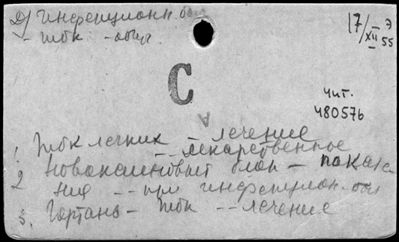 2) инфекционн. бол
- тбк - общ
17/XII 55 Э
С
А
чит.
480576
1. Тбк легких -- лечение
-- лекарственное
2 Новокаиновый блок - показа
ния -- при инфекцион. бол
3. Гортань - тбк -- лечение